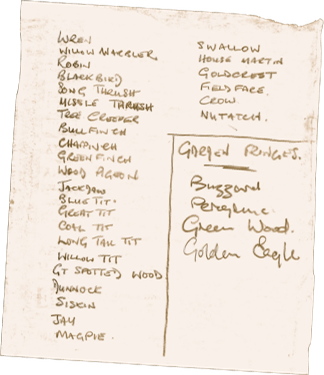 WREN
WILLOW WARBLER
ROBIN
BLACKBIRD
SONG THRUSH
MISSLE THRUSH
TREE CREEPER
BULLFINCH
CHAFFINCH
GREENFINCH
WOOD PIGEON
JACKDAW
BLUE TIT
GREAT TIT
COAL TIT
LONG TAIL TIT
WILLOW TIT
GT SPOTTED WOOD.
DUNNOCK
SISKIN
JAY
MAGPIE.
SWALLOW
HOUSE MARTIN
GOLDCREST
FIELDFARE.
CROW.
NUTATCH.
GARDEN FRINGES.
Buzzard
Peregrine.
Green Wood.
Golden Eagle